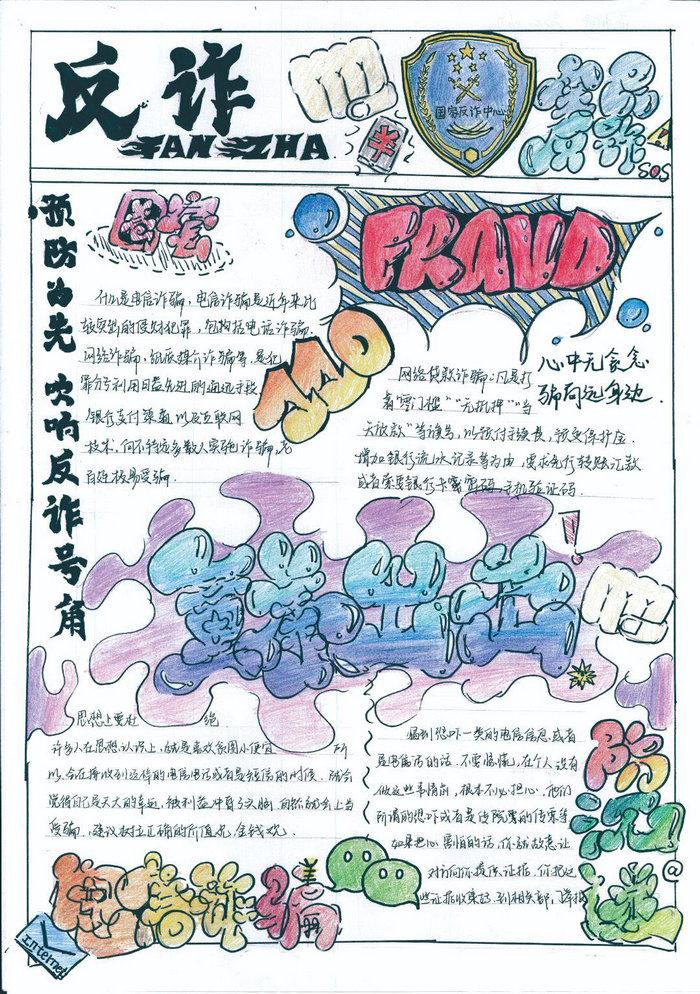 反诈
FAN ZHA
国家反诈中心
SOS
预防为先 吹响反诈号角
FRAUD
110
什么是电信诈骗,电信诈骗是近年来比
较突出的侵财犯罪,包括电话诈骗.
网络诈骗,纸质媒介诈骗等,是犯
罪分子利用日益先进的通迅手段
银行支付渠道以及互联网
技术,向不特定多数人实施诈骗,老
百姓极易受骗.
心中无贪念
骗局远身边.
网络贷款诈骗:凡是打
着"零门槛""无抵押""当
天放款"等旗号,以预付手续费,预交保护金.
增加银行流水记录等为由,要求先行转账汇款
或者索要银行卡密密码,手机验证码.
思想上要杜绝.
许多人在思想认识上,就是喜欢贪图小便宜 所
以会在接收到这样的电信电话或者是短信的时候,就会
觉得自己是天大的幸运,被利益冲昏了头脑,自然就会上当
受骗.建议树立正确的价值观,金钱观.
遇到恐吓一类的电信信息或者
是电信话的话,不要惊慌,在个人没有
做这些事情前,根本不必担心.他们
所谓的恐吓或者是法院寄的传票等
如果担心害怕的话.你就故意让
对方向你提供证据.你把这
些证据收集好.到相关部门寻找
电信诈骗
@
Internet